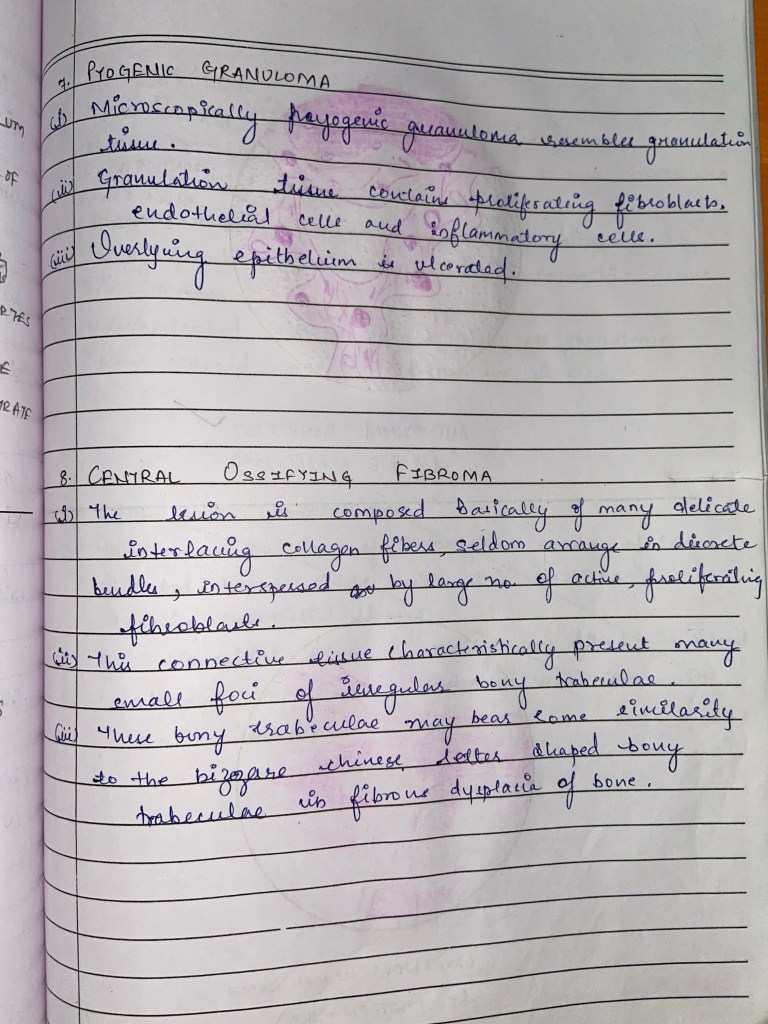 7. PYOGENIC GRANULOMA
(i) Microscopically payogenic granuloma resembles granulation
tissue.
(ii) Granulation tissue contains proliferating fibroblasts,
endothelial cells and inflammatory cells.
(iii) Overlying epithelium is ulcerated.
8. CENTRAL OSSIFYING FIBROMA
(i) The lesion is composed basically of many delicate
interlacing collagen fibers, seldom arrange in discrete
bundles, interspersed by large no. of active, proliferating
fibroblasts.
(ii) This connective tissue characteristically present many
small foci of irregular bony trabeculae.
(iii) These bony trabeculae may bear some similarity
to the bizzare chinese letter shaped bony
trabeculae in fibrous dysplacia of bone.
UM
OF
RTES
E
RATE